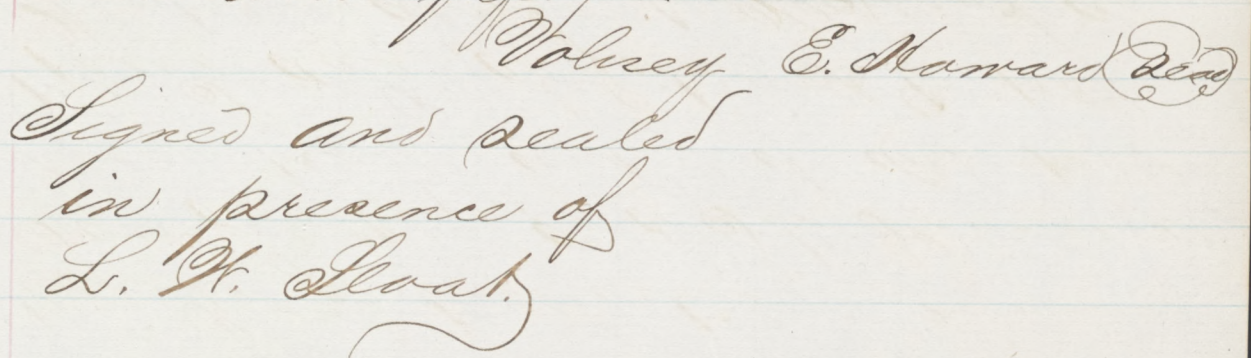 Volney E. Howard Seal
Signed and sealed
in presence of
L. W. Sloat.